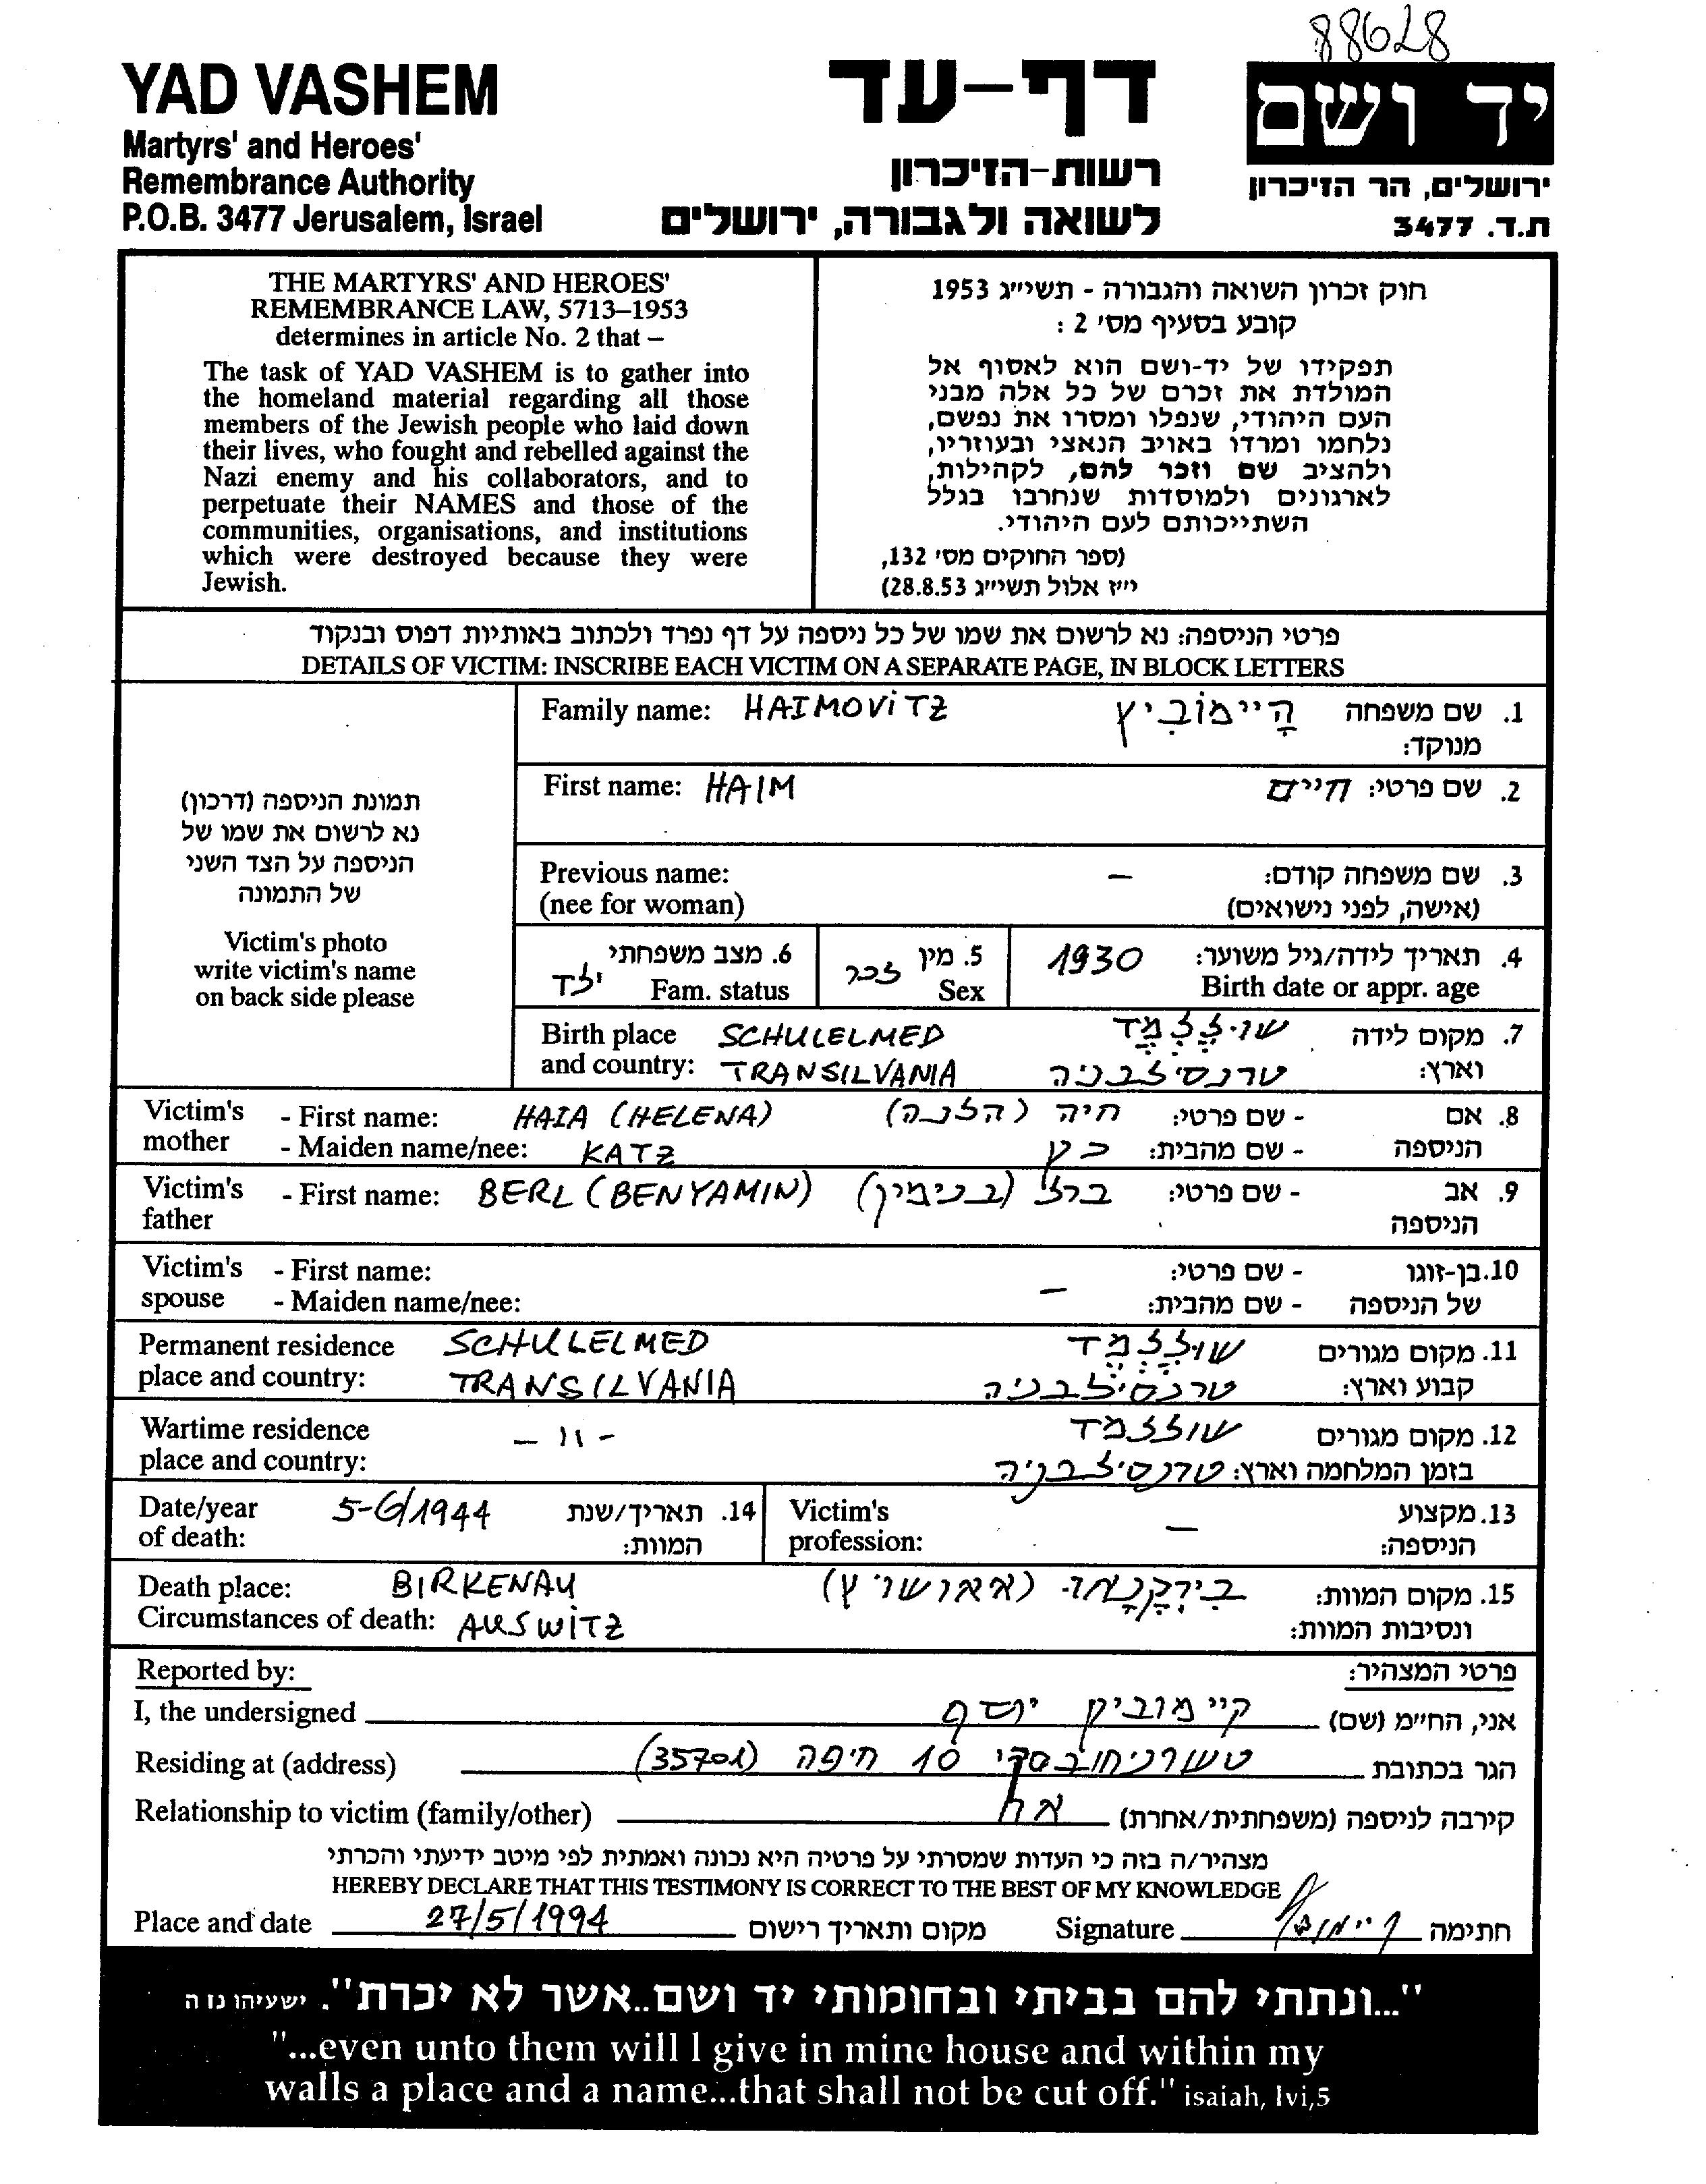 88628
YAD VASHEM
Martyrs' and Heroes'
Remembrance Authority
P.O.B. 3477 Jerusalem, Israel
דף-עד
רשות-הזיכרון
לשואה ולגבורה, ירושלים
יד ושם
ירושלים, הר הזיכרון
ת.ד. 3477
THE MARTYRS' AND HEROES'
REMEMBRANCE LAW, 5713–1953
determines in article No. 2 that –
The task of YAD VASHEM is to gather into
the homeland material regarding all those
members of the Jewish people who laid down
their lives, who fought and rebelled against the
Nazi enemy and his collaborators, and to
perpetuate their NAMES and those of the
communities, organisations, and institutions
which were destroyed because they were
Jewish.
חוק זכרון השואה והגבורה - תשי״ג 1953
קובע בסעיף מס׳ 2 :
תפקידו של יד-ושם הוא לאסוף אל
המולדת את זכרם של כל אלה מבני
העם היהודי, שנפלו ומסרו את נפשם,
נלחמו ומרדו באויב הנאצי ובעוזריו,
ולהציב שם וזכר להם, לקהילות,
לארגונים ולמוסדות שנחרבו בגלל
השתייכותם לעם היהודי.
(ספר החוקים מס׳ 132,
י״ז אלול תשי״ג 28.8.53)
פרטי הניספה: נא לרשום את שמו של כל ניספה על דף נפרד ולכתוב באותיות דפוס ובנקוד
DETAILS OF VICTIM: INSCRIBE EACH VICTIM ON A SEPARATE PAGE, IN BLOCK LETTERS
תמונת הניספה (דרכון)
נא לרשום את שמו של
הניספה על הצד השני
של התמונה
Victim's photo
write victim's name
on back side please
Family name: HAIMOVITZ הָיימוֹבִיץ 1. שם משפחה
מנוקד:
First name: HAIM חיים 2. שם פרטי:
Previous name: – 3. שם משפחה קודם:
(nee for woman) (אישה, לפני נישואים)
6. מצב משפחתי 5. מין 1930 4. תאריך לידה/גיל משוער:
ילד Fam. status זכר Sex Birth date or appr. age
Birth place SCHULELMED שוּלֶלְמֶד 7. מקום לידה
and country: TRANSILVANIA טרנסילבניה וארץ:
Victim's - First name: HAIA (HELENA) חיה (הלנה) - שם פרטי: 8. אם
mother - Maiden name/nee: KATZ כץ - שם מהבית: הניספה
Victim's - First name: BERL (BENYAMIN) ברל (בנימין) - שם פרטי: 9. אב
father הניספה
Victim's - First name: - שם פרטי: 10. בן-זוגו
spouse - Maiden name/nee: – - שם מהבית: של הניספה
Permanent residence SCHULELMED שוּלֶלְמֶד 11. מקום מגורים
place and country: TRANSILVANIA טרנסילבניה קבוע וארץ:
Wartime residence – 11 – שוללמד 12. מקום מגורים
place and country: טרנסילבניה בזמן המלחמה וארץ:
Date/year 5-6/1944 14. תאריך/שנת Victim's – 13. מקצוע
of death: המוות: profession: הניספה:
Death place: BIRKENAU בִּירְקֶנָאוּ- (אאושויץ) 15. מקום המוות:
Circumstances of death: AUSWITZ ונסיבות המוות:
Reported by: פרטי המצהיר:
I, the undersigned היימוביץ יוסף אני, החיימ (שם)
Residing at (address) טשרניחובסקי 10 חיפה (35701) הגר בכתובת
Relationship to victim (family/other) אח קירבה לניספה (משפחתית/אחרת)
מצהיר/ה בזה כי העדות שמסרתי על פרטיה היא נכונה ואמתית לפי מיטב ידיעתי והכרתי
HEREBY DECLARE THAT THIS TESTIMONY IS CORRECT TO THE BEST OF MY KNOWLEDGE
Place and date 27/5/1994 מקום ותאריך רישום Signature חתימה
"...ונתתי להם בביתי ובחומותי יד ושם..אשר לא יכרת". ישעיהו נו ה
"...even unto them will I give in mine house and within my
walls a place and a name...that shall not be cut off." isaiah, lvi,5